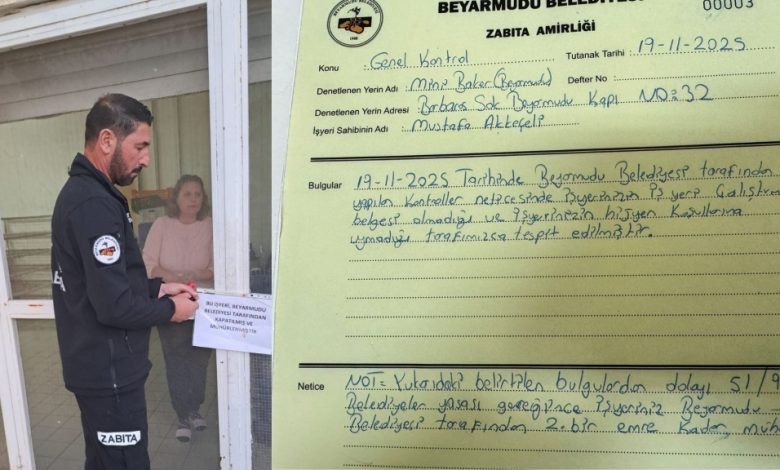 BEYARMUDU BELEDİYESİ
00003
ZABITA AMİRLİĞİ
Konu : Genel Kontrol Tutanak Tarihi : 19-11-2025
Denetlenen Yerin Adı : Mini Baker (Beyarmudu) Defter No :
Denetlenen Yerin Adresi : Barbaros Sok Beyarmudu Kapı NO: 32
İşyeri Sahibinin Adı : Mustafa Akkeçeli
Bulgular 19-11-2025 Tarihinde Beyarmudu Belediyesi tarafından
yapılan kontroller neticesinde işyerinizin iş yeri Çalıştırma
belgesi olmadığı ve işyerinizin hijyen Koşullarına
uymadığı tarafımızca tespit edilmiştir.
Netice NOT= Yukarıdaki belirtilen bulgulardan dolayı 51/9
Belediyeler yasası gereğince işyeriniz Beyarmudu
Belediyesi tarafından 2. bir emre Kadar, müh
BU İŞYERİ, BEYARMUDU
BELEDİYESİ TARAFINDAN
KAPATILMIŞ VE
MÜHÜRLENMİŞTİR
ZABITA